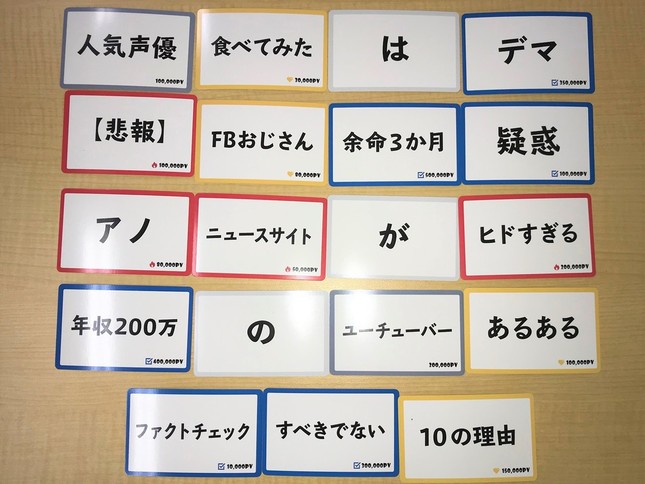 人気声優
100,000PV
食べてみた
30,000PV
は
デマ
350,000PV
【悲報】
100,000PV
FBおじさん
80,000PV
余命3か月
600,000PV
疑惑
100,000PV
アノ
80,000PV
ニュースサイト
60,000PV
が
ヒドすぎる
200,000PV
年収200万
400,000PV
の
ユーチューバー
200,000PV
あるある
100,000PV
ファクトチェック
10,000PV
すべきでない
300,000PV
10の理由
150,000PV